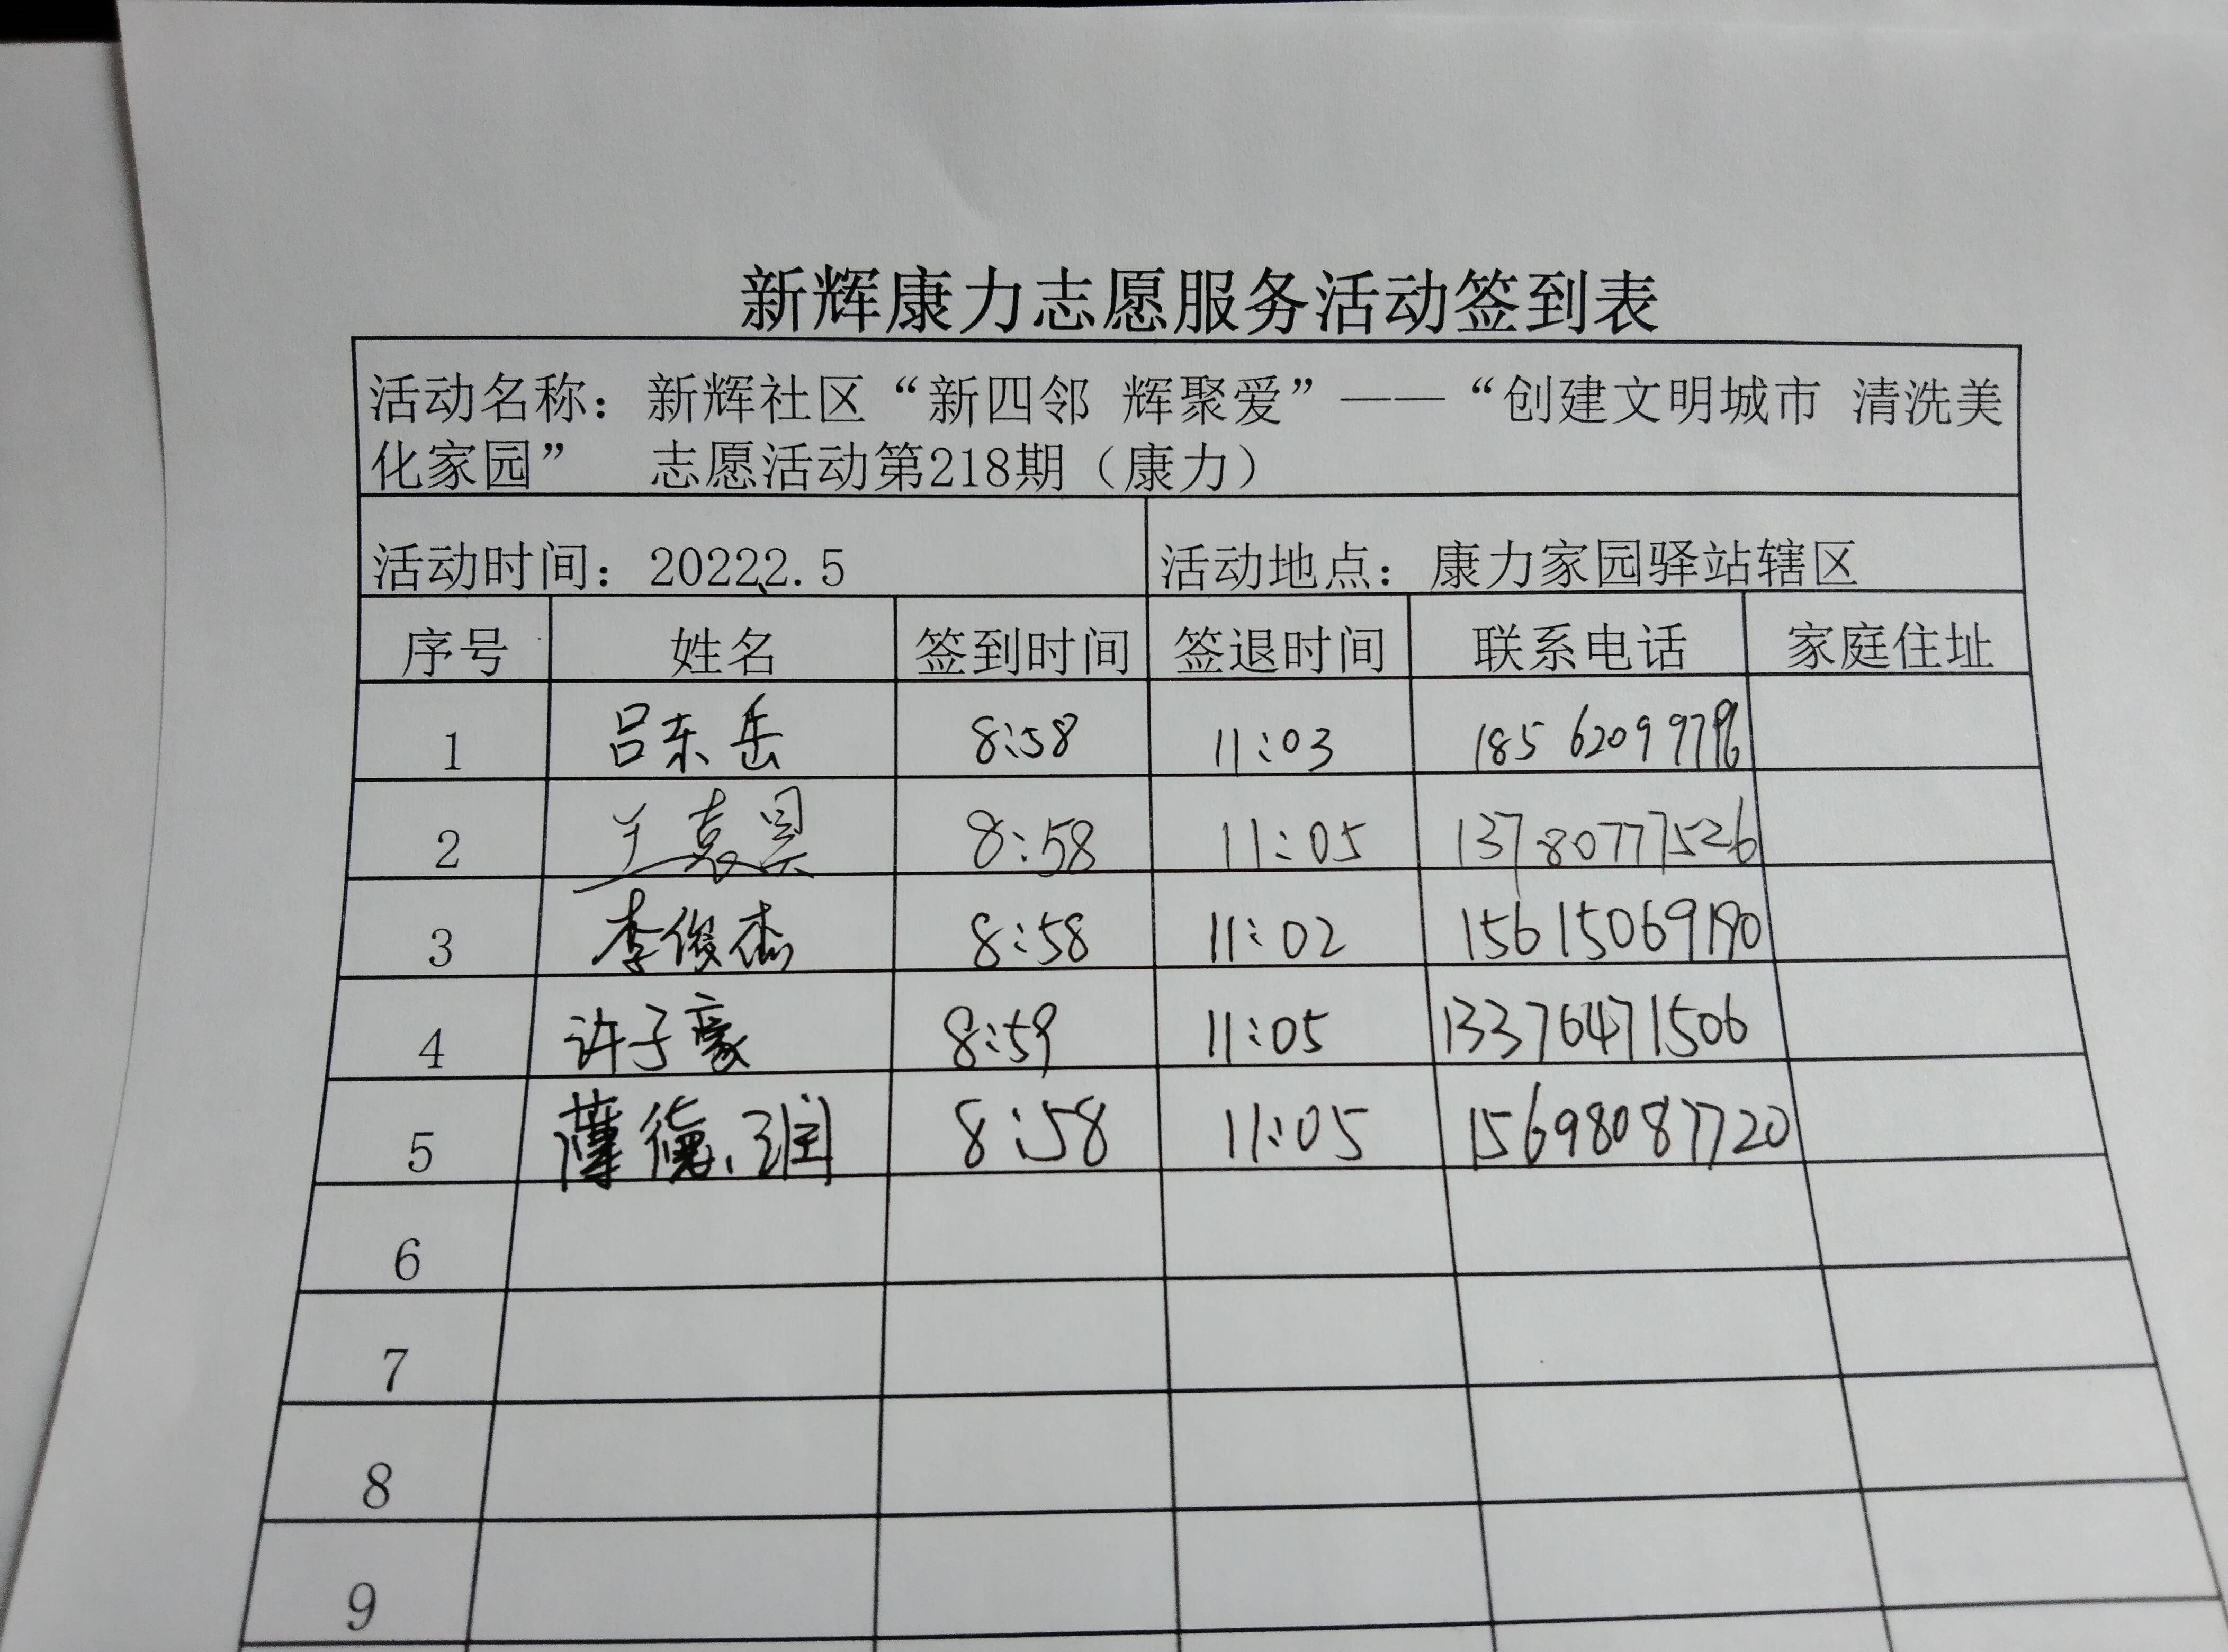 新辉康力志愿服务活动签到表
活动名称：新辉社区“新四邻 辉聚爱”——“创建文明城市 清洗美
化家园” 志愿活动第218期（康力）
活动时间：20222.5 活动地点：康力家园驿站辖区
序号 姓名 签到时间 签退时间 联系电话 家庭住址
1 吕东岳 8:58 11:03
2 8:58 11:05 13780777526
3 李俊杰 8:58 11:02 15615069190
4 许子豪 8:59 11:05 13376471506
5 薄德润 8:58 11:05 15698087720
6
7
8
9